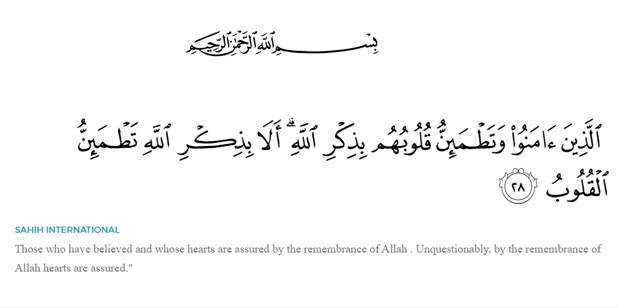 بِسْمِ ٱللَّهِ ٱلرَّحْمَٰنِ ٱلرَّحِيمِ
ٱلَّذِينَ ءَامَنُوا۟ وَتَطْمَئِنُّ قُلُوبُهُم بِذِكْرِ ٱللَّهِ ۗ أَلَا بِذِكْرِ ٱللَّهِ تَطْمَئِنُّ
ٱلْقُلُوبُ ٢٨
SAHIH INTERNATIONAL
Those who have believed and whose hearts are assured by the remembrance of Allah . Unquestionably, by the remembrance of
Allah hearts are assured."